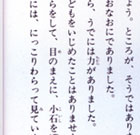 ょう。ところが、そうであり
おなおにでありました。
ら、うでには力がありました。
どもをいじめたことはありませ
らをして、目のまえに、小石を
には、にっこりわらって見てい